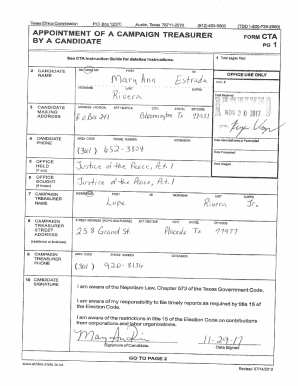 Texas Ethics Commission P.O. Box 12070 Austin, Texas 78711-2070 (512) 463-5800 (TDD 1-800-735-2989)
APPOINTMENT OF A CAMPAIGN TREASURER
BY A CANDIDATE
FORM CTA
PG 1
See CTA Instruction Guide for detailed instructions.
1 Total pages filed:
2 CANDIDATE NAME
MS / MRS / MR FIRST MI
Mary Ann Estrada
NICKNAME LAST SUFFIX
Rivera
OFFICE USE ONLY
Date Received
NOV 20 2017
3 CANDIDATE MAILING ADDRESS
ADDRESS / PO BOX; APT / SUITE #; CITY; STATE; ZIP CODE
Bloomington Tx 77951
4 CANDIDATE PHONE
AREA CODE PHONE NUMBER EXTENSION
(361) 652-3304
Date Hand-delivered or Postmarked
Date Processed
Date Imaged
5 OFFICE HELD (if any)
Justice of the Peace, Pct. 1
6 OFFICE SOUGHT (if known)
Justice of the Peace, Pct. 1
7 CAMPAIGN TREASURER NAME
MS / MRS / MR FIRST MI NICKNAME LAST SUFFIX
Lupe Rivera Jr.
8 CAMPAIGN TREASURER STREET ADDRESS (residence or business)
STREET ADDRESS (NO PO BOX PLEASE); APT / SUITE #; CITY; STATE; ZIP CODE
258 Grand St. Placedo Tx 77977
9 CAMPAIGN TREASURER PHONE
AREA CODE PHONE NUMBER EXTENSION
(361) 920-8136
10 CANDIDATE SIGNATURE
I am aware of the Nepotism Law, Chapter 573 of the Texas Government Code.
I am aware of my responsibility to file timely reports as required by title 15 of
the Election Code.
I am aware of the restrictions in title 15 of the Election Code on contributions
from corporations and labor organizations.
11-29-17
Signature of Candidate Date Signed
GO TO PAGE 2
www.ethics.state.tx.us Revised 07/14/2010